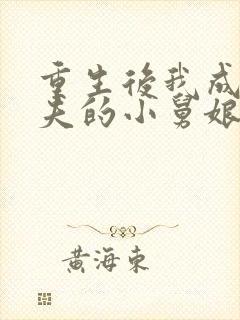 重生後我成
夫的小舅娘
黃海東